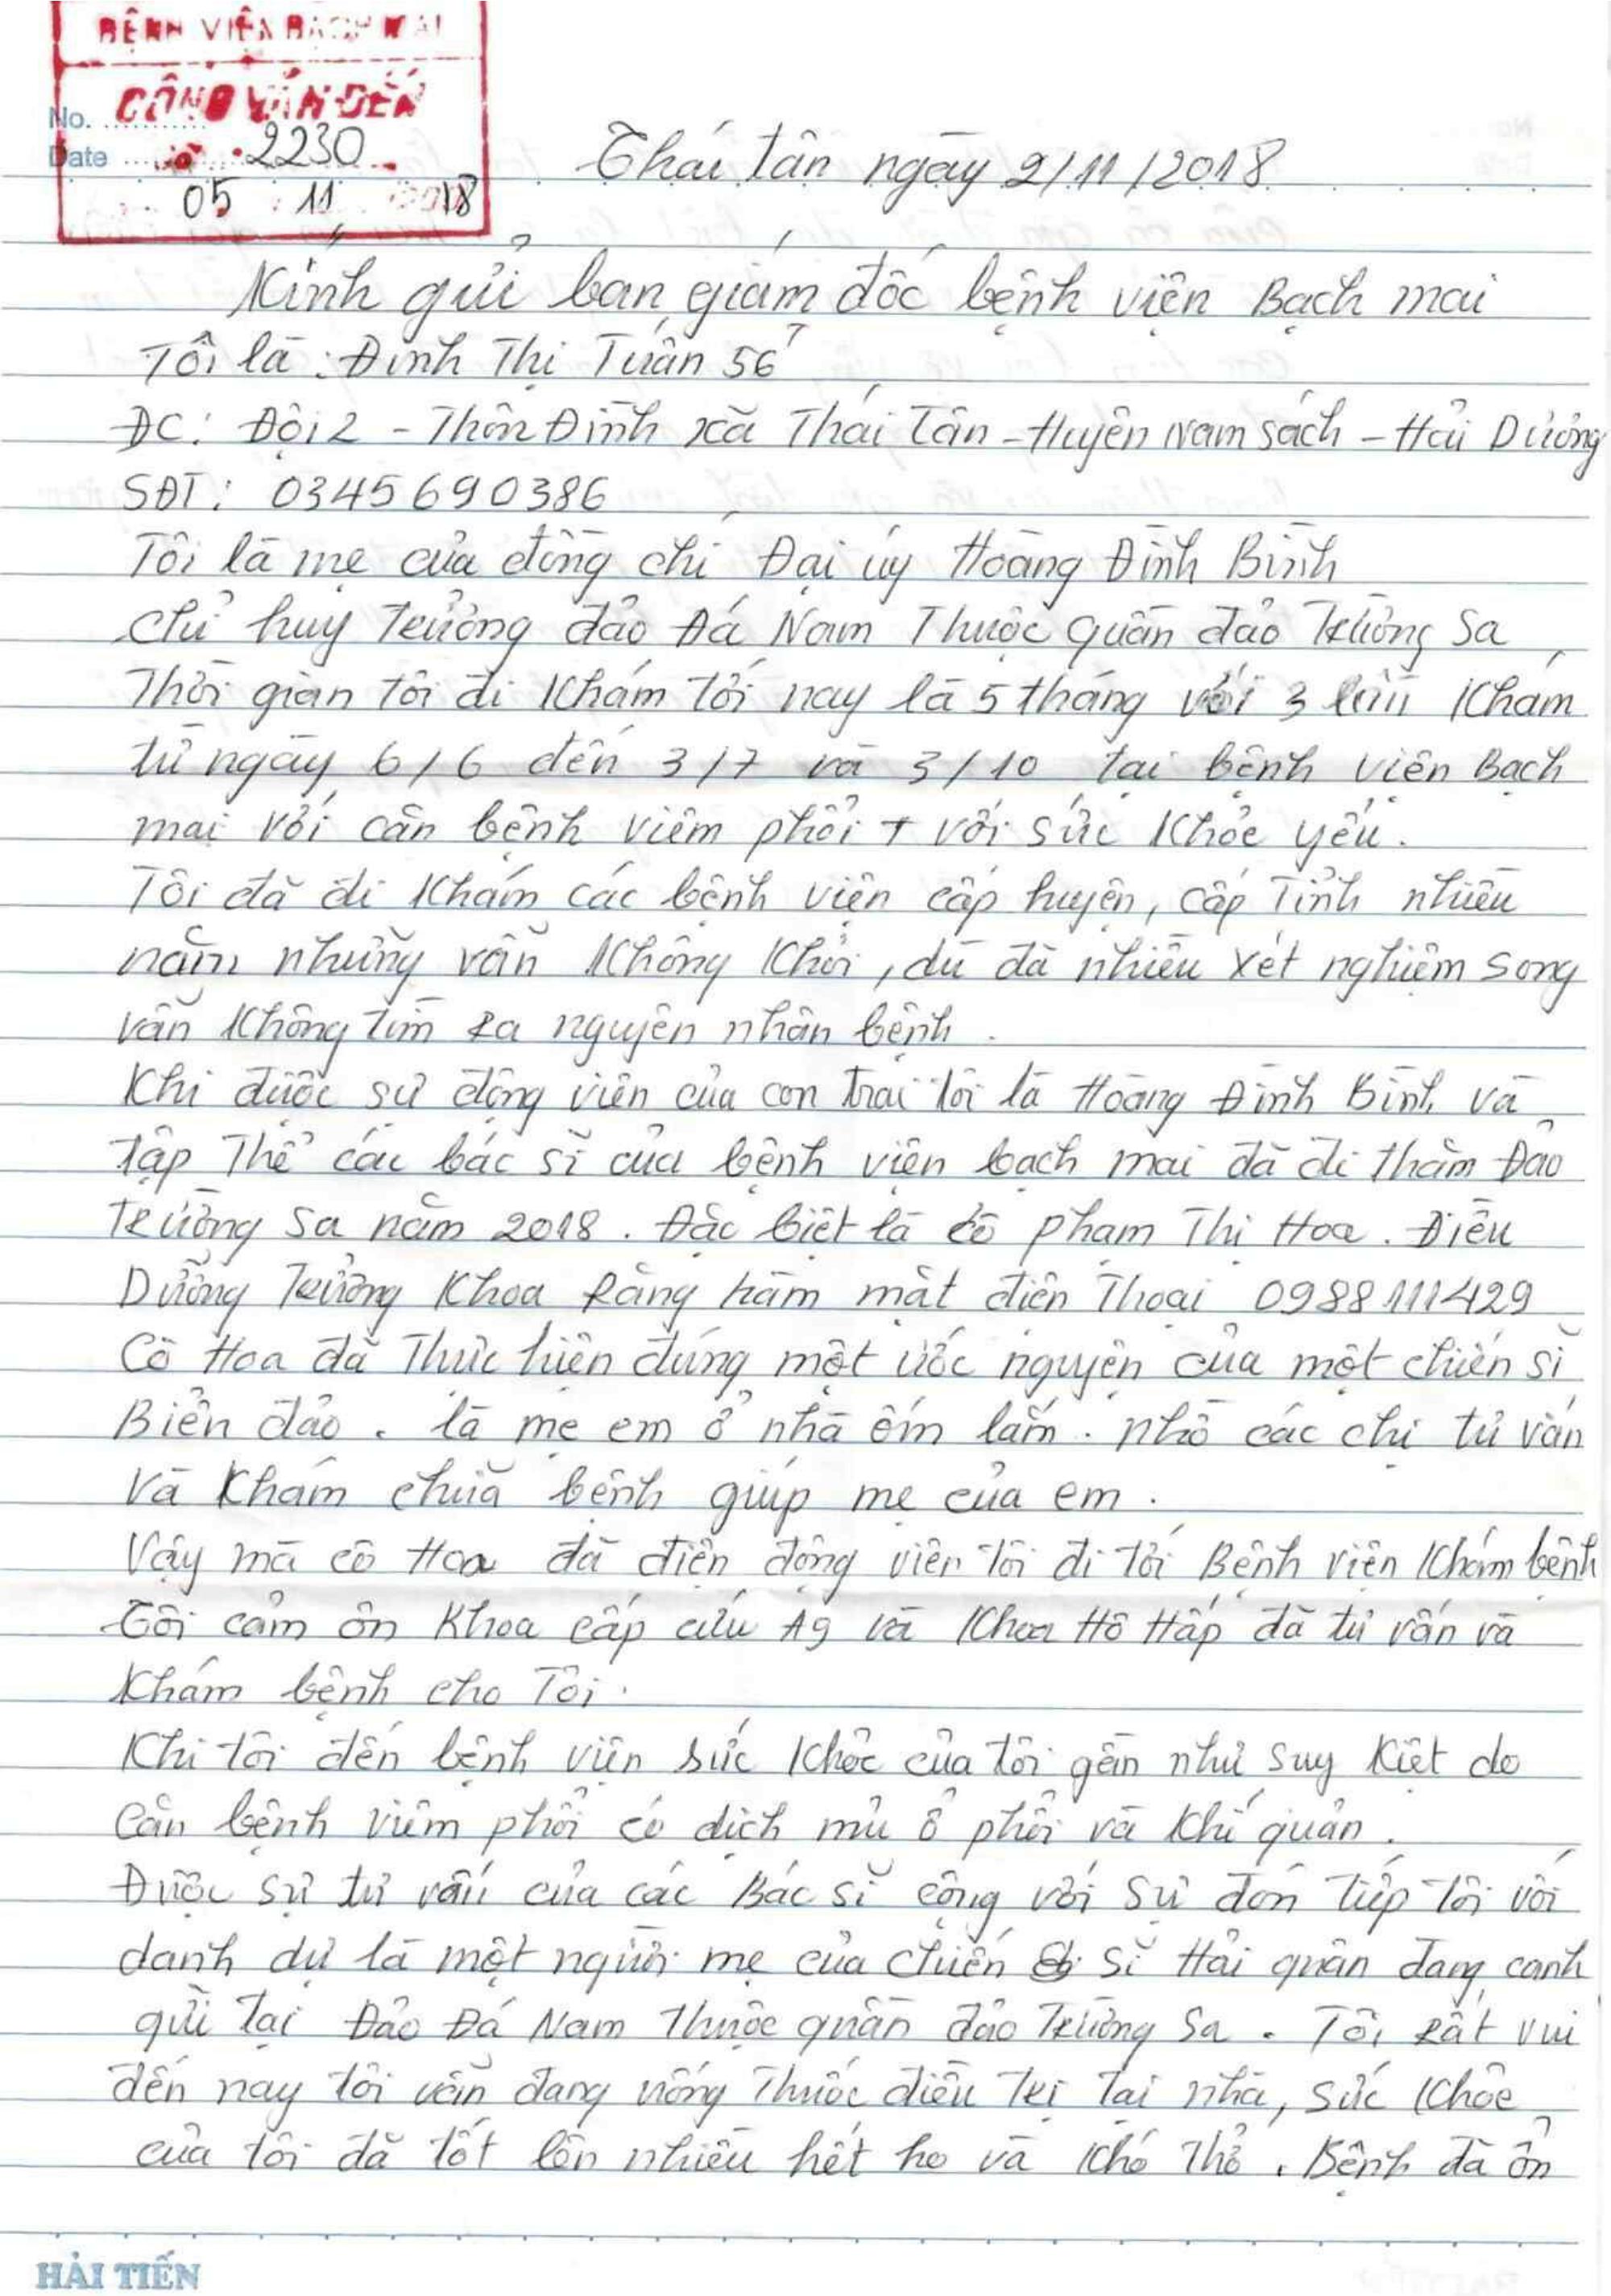 BỆNH VIỆN BẠCH MAI
CÔNG VĂN ĐẾN
No.
Date
2230
05 11 18
Thái Tân ngày 2/11/2018
Kính gửi ban giám đốc bệnh viện Bạch mai
Tôi là: Đinh Thị Tuân 56
ĐC: Đội 2 - Thôn Đình xã Thái Tân - Huyện Nam Sách - Hải Dương
SĐT: 0345690386
Tôi là mẹ của đồng chí Đại úy Hoàng Đình Bình
chỉ huy Trưởng đảo Đá Nam Thuộc quần đảo Trường Sa
Thời gian tôi đi khám tới nay là 5 tháng với 3 lần khám
từ ngày 6/6 đến 3/7 và 3/10 tại bệnh viện Bạch
mai với căn bệnh viêm phổi + với sức khỏe yếu.
Tôi đã đi khám các bệnh viện cấp huyện, cấp Tỉnh nhiều
năm nhưng vẫn không khỏi, dù đã nhiều xét nghiệm song
vẫn không tìm ra nguyên nhân bệnh.
Khi được sự động viên của con trai tôi là Hoàng Đình Bình và
tập Thể các bác sĩ của bệnh viện bạch mai đã đi thăm Đảo
Trường Sa năm 2018. Đặc biệt là cô phạm Thị Hoa. Điều
Dưỡng Trưởng Khoa Răng hàm mặt điện Thoại 0988111429
Cô Hoa đã Thực hiện đúng một ước nguyện của một chiến sĩ
Biển đảo. là mẹ em ở nhà ốm lắm. nhờ các chị tư vấn
và khám chữa bệnh giúp mẹ của em.
Vậy mà cô Hoa đã điện động viên tôi đi tới Bệnh viện khám bệnh
Tôi cảm ơn Khoa cấp cứu A9 và Khoa Hô Hấp đã tư vấn và
khám bệnh cho Tôi.
Khi tôi đến bệnh viện sức khỏe của tôi gần như suy kiệt do
căn bệnh viêm phổi có dịch mủ ở phổi và khí quản.
Được sự tư vấn của các Bác sĩ cộng với sự đón tiếp tôi với
danh dự là một người mẹ của chiến sĩ Hải quân đang canh
giữ tại Đảo Đá Nam Thuộc quần đảo Trường Sa. Tôi rất vui
đến nay tôi vẫn đang uống Thuốc điều trị tại nhà, sức khỏe
của tôi đã tốt lên nhiều hết ho và khó thở. Bệnh đã ổn
HẢI TIẾN